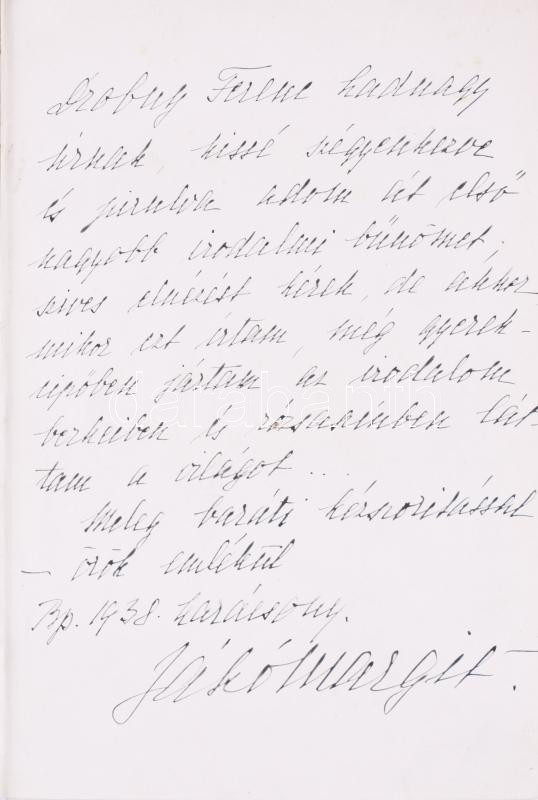 Drobny Ferenc hadnagy
úrnak, kissé szégyenkezve
és pirulva adom át első
nagyobb irodalmi bűnömet,
szives elnézést kérek, de akkor
mikor ezt írtam, még gyerek-
cipőben jártam az irodalom
berkeiben és rózsaszínben lát-
tam a világot ...
Meleg baráti kézszorítással
– örök emlékül
Bp. 1938. karácsony.
Jákó Margit.
darabanth